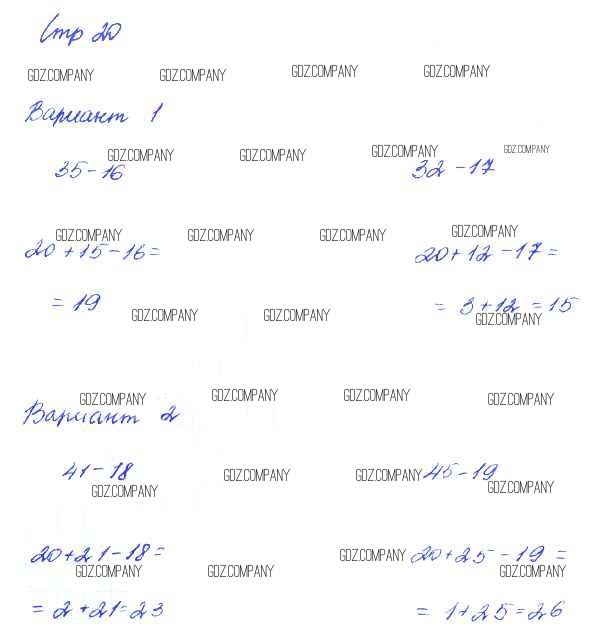 Стр 20
GDZ.COMPANY GDZ.COMPANY GDZ.COMPANY GDZ.COMPANY
Вариант 1
GDZ.COMPANY GDZ.COMPANY GDZ.COMPANY GDZ.COMPANY
35-16 32-17
GDZ.COMPANY GDZ.COMPANY GDZ.COMPANY GDZ.COMPANY
20+15-16= 20+12-17=
=19 = 3+12=15
GDZ.COMPANY GDZ.COMPANY GDZ.COMPANY
GDZ.COMPANY GDZ.COMPANY GDZ.COMPANY GDZ.COMPANY
Вариант 2
41-18 GDZ.COMPANY GDZ.COMPANY 45-19
GDZ.COMPANY GDZ.COMPANY
20+21-18= GDZ.COMPANY 20+25-19=
GDZ.COMPANY GDZ.COMPANY GDZ.COMPANY
=2+21=23 =1+25=26